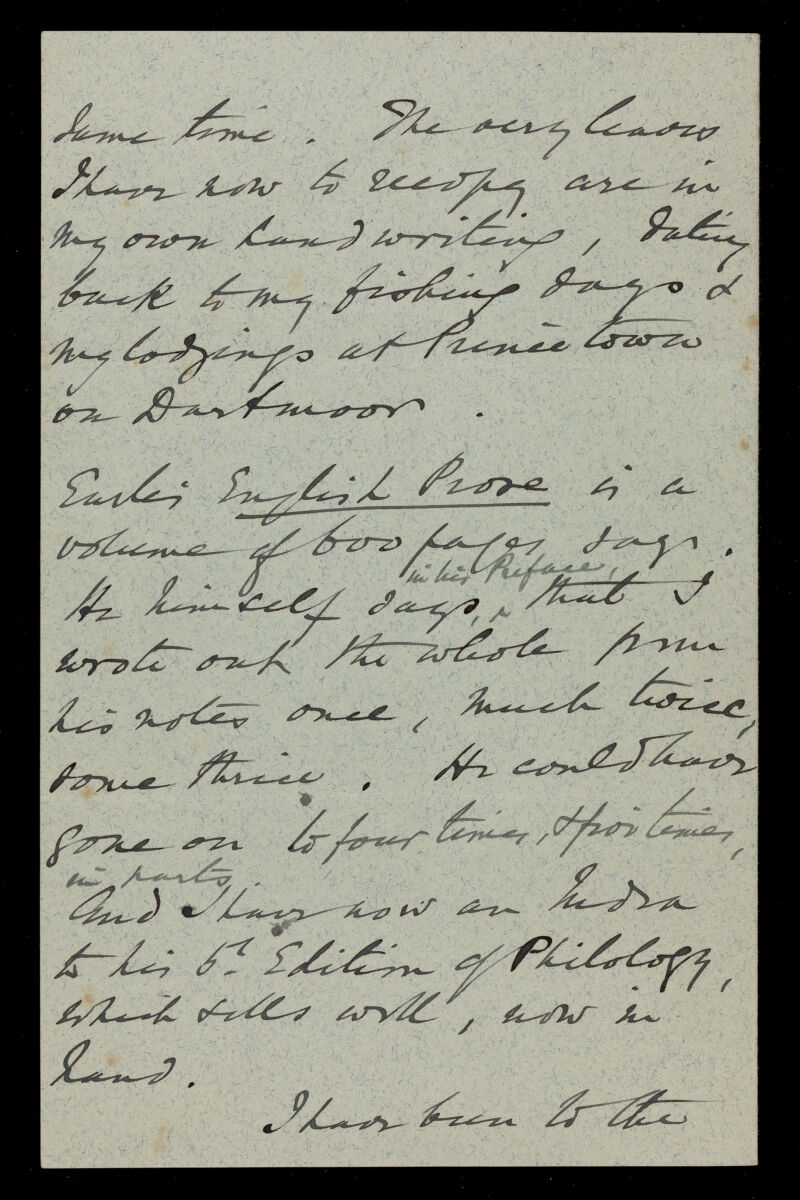 same time. The very leaves
I have now to recopy are in
my own handwriting, dating
back to my fishing days &
my lodgings at Princetown
on Dartmoor.
Earle's English Prose is a
volume of 600 pages, say.
in his Preface,
He himself says, ^ that I
wrote out the whole from
his notes once, much twice,
some thrice. He could have
gone on to four times, & five times,
in parts
And I have now an Index
to his 5th. Edition of Philology,
which sells well, now in
hand.
I have been to the